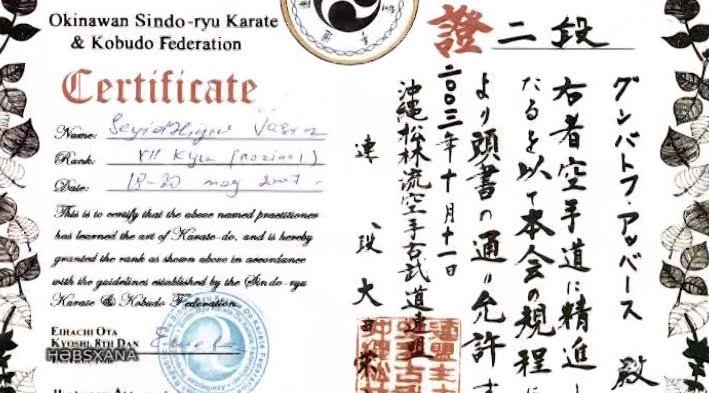 Okinawan Sindo-ryu Karate
& Kobudo Federation
Certificate
Name:
Rank: VII Kyu
Date: 18-20 may 2007
This is to certify that the above named practitioner
has learned the art of Karate-do, and is hereby
granted the rank as shown above in accordance
with the guidelines established by the Sindo-ryu
Karate & Kobudo Federation.
EIHACHI OTA
KYOSHI, 8TH DAN
HƏBSXANA
證 二段
グンバトフ・アッバース 殿
右者空手道に精進し
たるを以て本会の規程に
より頭書の通り允許す
二〇〇三年十月十一日
沖縄松林流空手古武道連盟
八段 大田栄